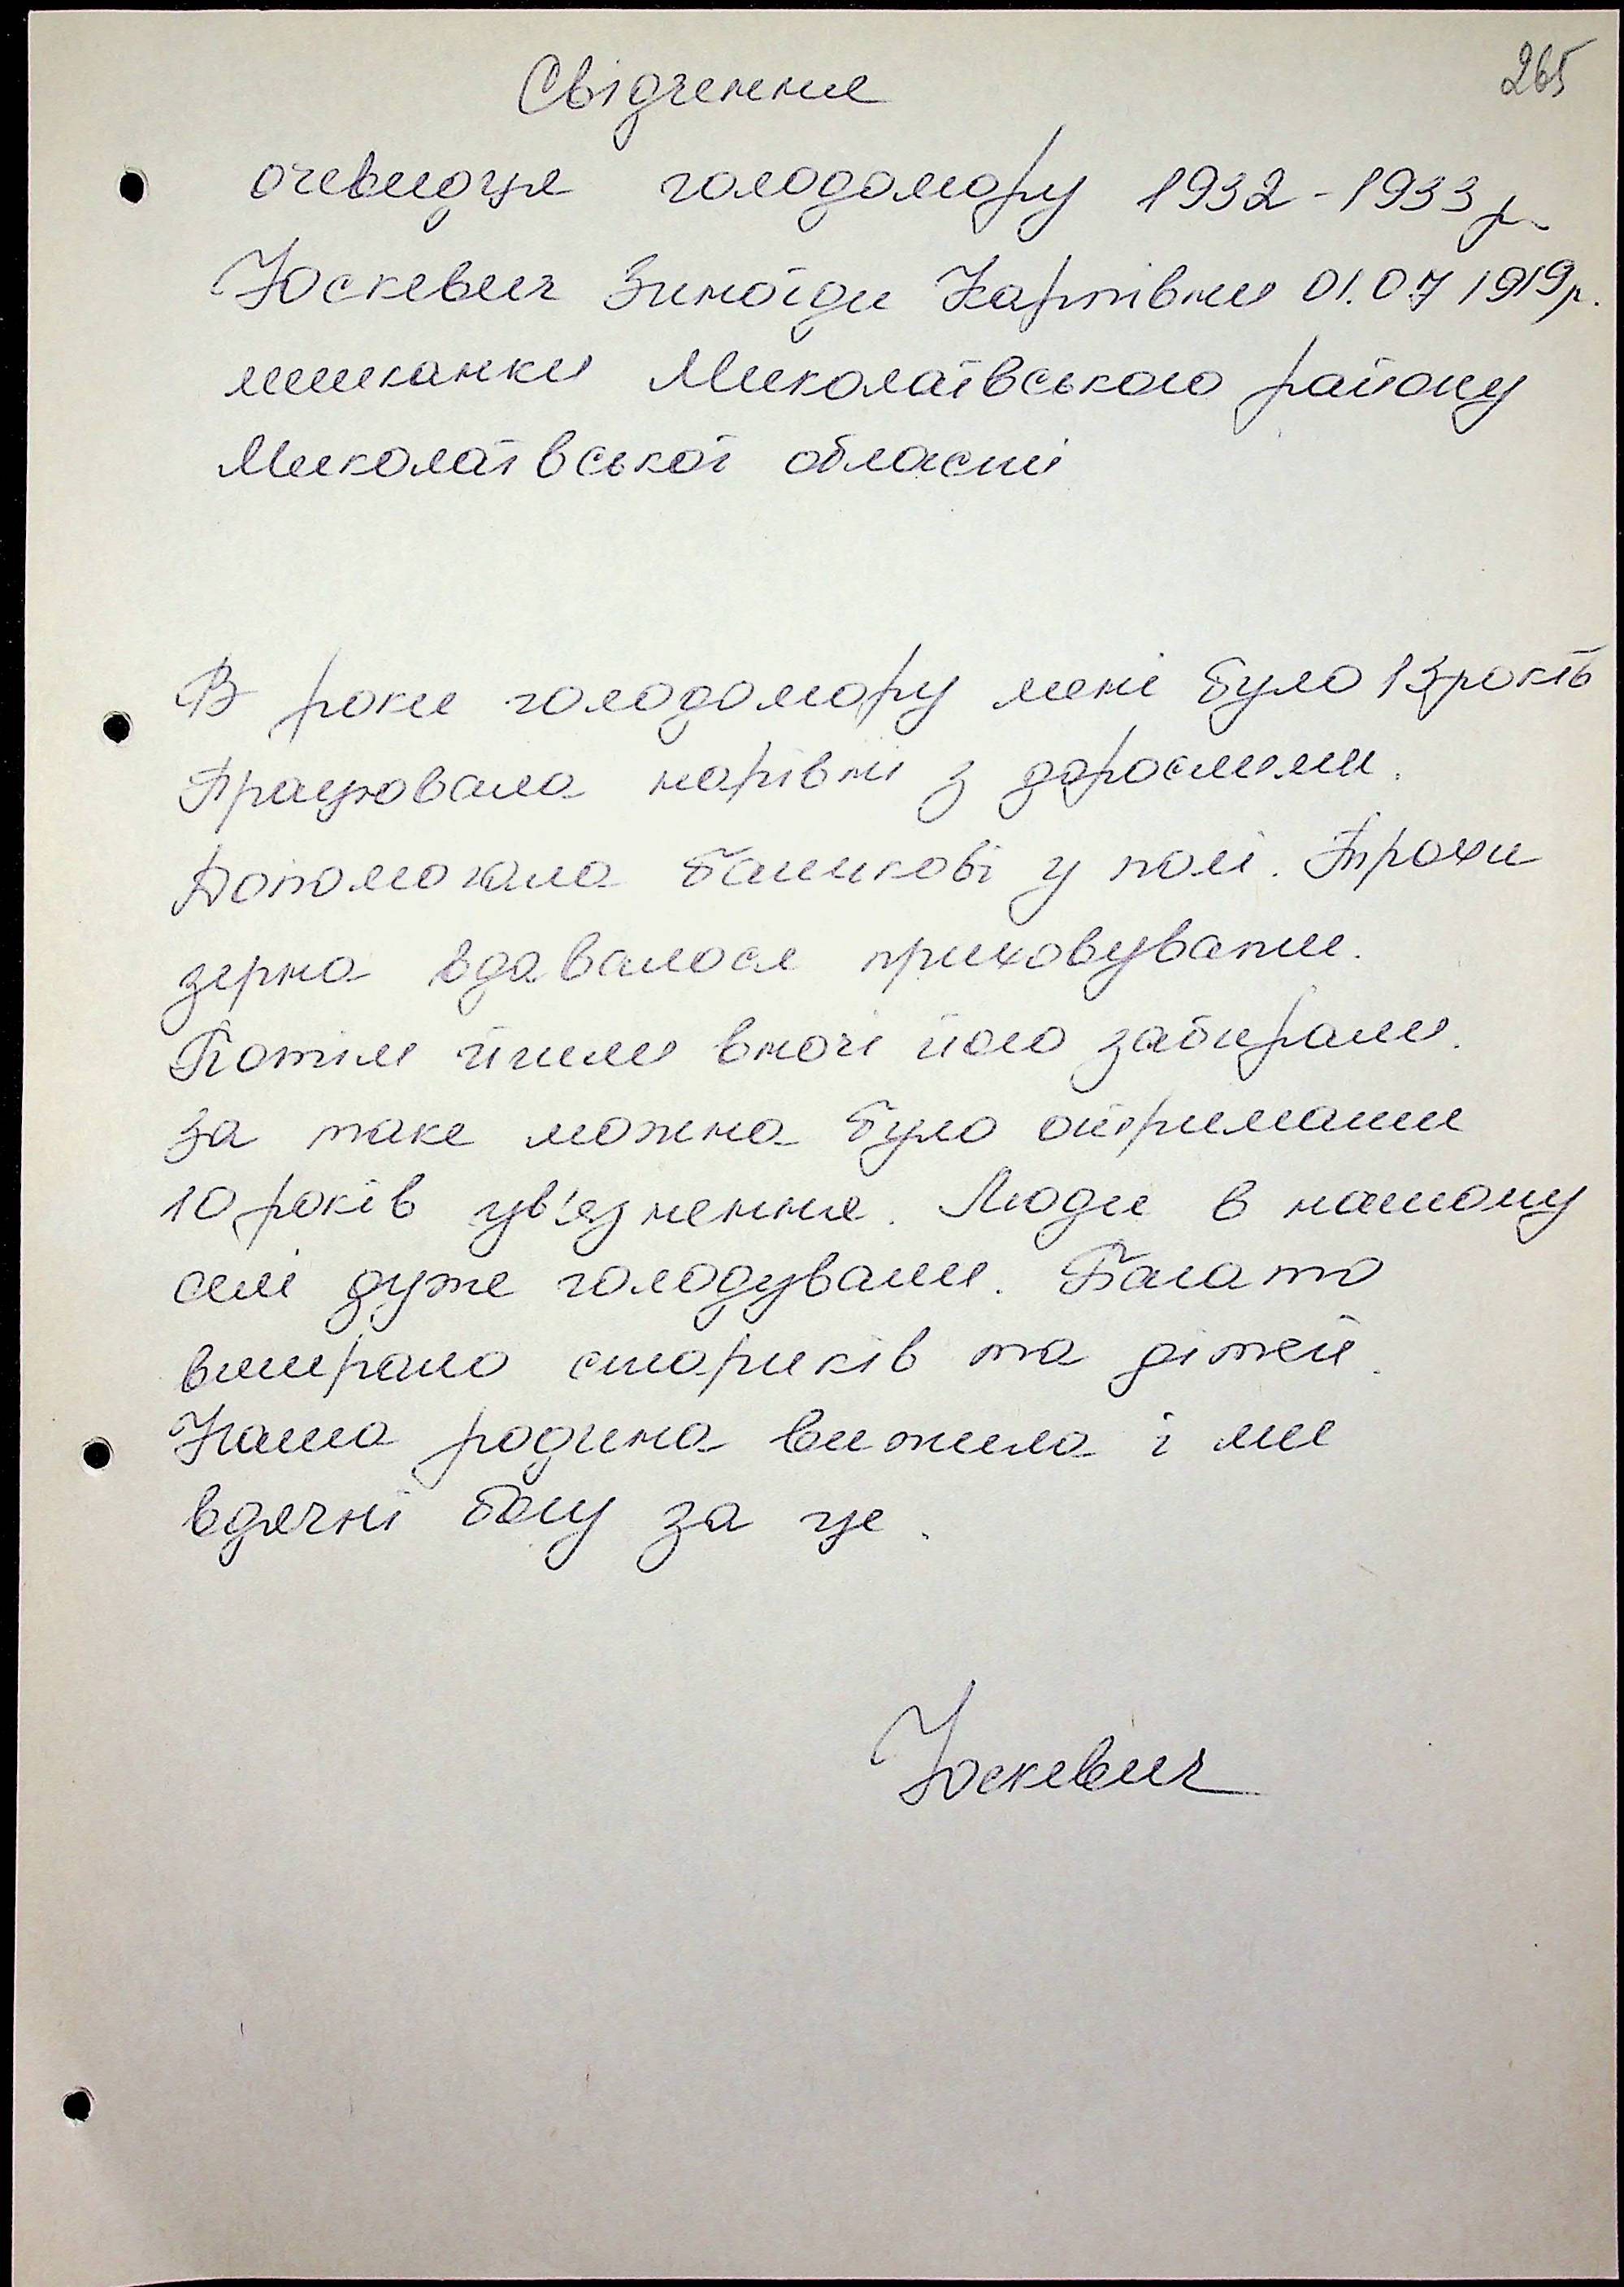 265
Свідчення
очевидця голодомору 1932-1933 р
Юскевич Зинаїди Карпівни 01.07 1919р.
мешканки Миколаївського району
Миколаївської області
В роки голодомору мені було 13 років
Працювала нарівні з дорослими.
Допомогала батькові у полі. Трохи
зерна вдавалося приховувати.
Потім йшли вночі його забирали.
За таке можна було отримати
10 років ув'язнення. Люди в нашому
селі дуже голодували. Багато
вмирало стариків та дітей.
Наша родина вижила і ми
вдячні богу за це.
Юскевич